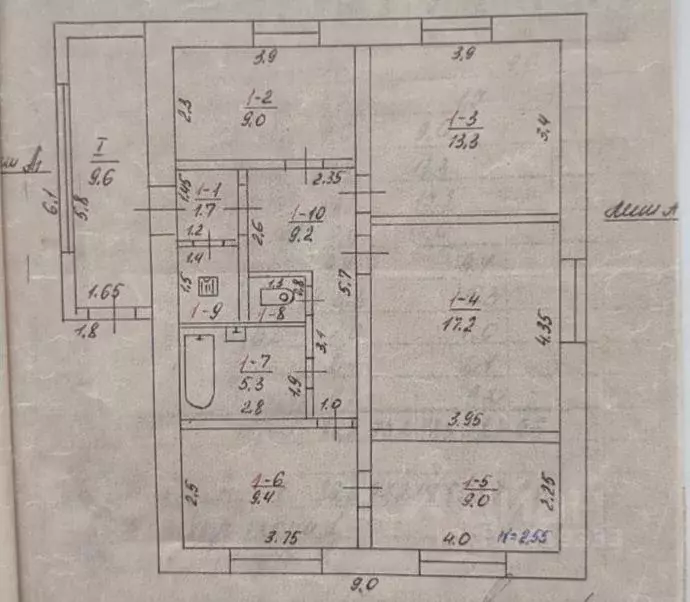 3.9
3.9
1-2
9.0
2.3
1-3
13.3
3.4
I
9.6
6.1
5.8
1.65
1.8
1-1
1.7
1.45
1.2
2.35
1-10
9.2
2.6
5.7
1.4
1.5
1-9
1.3
1-8
3.1
1-4
17.2
4.35
3.95
1-7
5.3
1.9
2.8
1.0
1-6
9.4
2.5
3.75
1-5
9.0
2.25
4.0
h=2.55
9.0